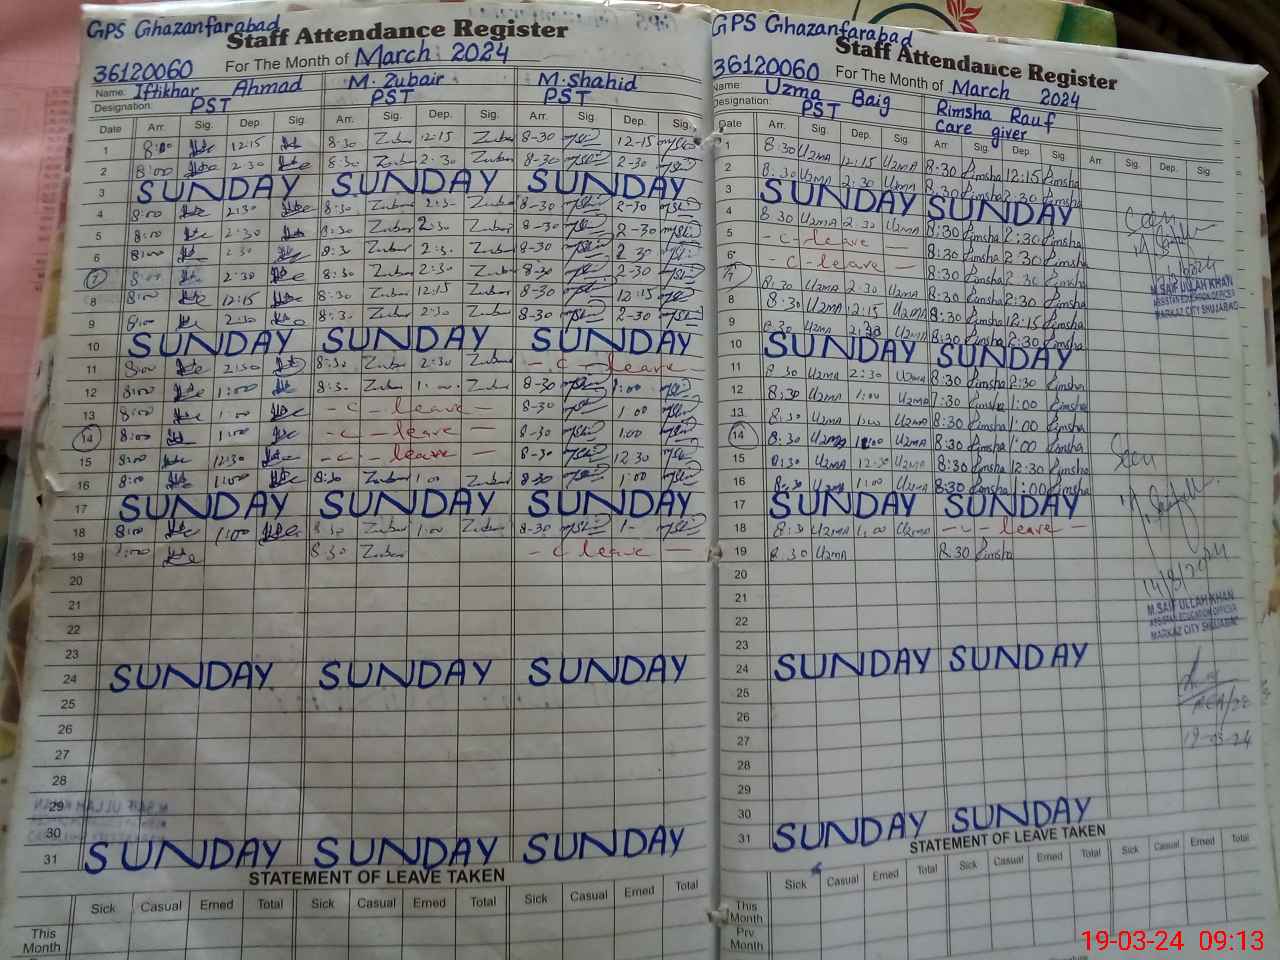 GPS Ghazanfarabad
Staff Attendance Register
36120060 For The Month of March 2024
Name: Iftikhar Ahmad M. Zubair M. Shahid
Designation: PST PST PST
Date Arr. Sig. Dep. Sig. Arr. Sig. Dep. Sig. Arr. Sig. Dep. Sig.
1 8:00 12:15 8:30 Zubair 12:15 Zubair 8-30 12-15
2 8:00 2:30 8:30 Zubair 2:30 Zubair 8-30 2-30
3 SUNDAY SUNDAY SUNDAY
4 8:00 2:30 8:30 Zubair 2:30 Zubair 8-30 2-30
5 8:00 2:30 8:30 Zubair 2:30 Zubair 8-30 2-30
6 8:00 2:30 8:30 Zubair 2:30 Zubair 8-30 2 30
7 8:00 2:30 8:30 Zubair 2:30 Zubair 8-30 2-30
8 8:00 12:15 8:30 Zubair 12:15 Zubair 8-30 12-15
9 8:00 2:30 8:30 Zubair 2:30 Zubair 8-30 2-30
10 SUNDAY SUNDAY SUNDAY
11 8:00 2:30 8:30 Zubair 2:30 Zubair - c - leave -
12 8:00 1:00 8:30 Zubair 1:00 Zubair 8-30 1:00
13 8:00 1:00 - c - leave - 8-30 1.00
14 8:00 1:00 - c - leave - 8-30 1.00
15 8:00 12:30 - c - leave - 8-30 12.30
16 8:00 1:00 8:30 Zubair 1:00 Zubair 8-30 1-00
17 SUNDAY SUNDAY SUNDAY
18 8:00 1:00 8:30 Zubair 1:00 Zubair 8-30 1-
19 8:30 Zubair - c leave -
20
21
22
23
24 SUNDAY SUNDAY SUNDAY
25
26
27
28
29
30
31 SUNDAY SUNDAY SUNDAY
STATEMENT OF LEAVE TAKEN
Sick Casual Erned Total Sick Casual Erned Total Sick Casual Erned Total
This Month
GPS Ghazanfarabad
Staff Attendance Register
36120060 For The Month of March 2024
Name: Uzma Baig Rimsha Rauf
Designation: PST care giver
Date Arr. Sig. Dep. Sig. Arr. Sig. Dep. Sig. Arr. Sig. Dep. Sig.
1 8:30 UzmA 12:15 UzmA 8:30 Rimsha 12:15 Rimsha
2 8:30 UzmA 2:30 UzmA 8:30 Rimsha 2:30 Rimsha
3 SUNDAY SUNDAY
4 8 30 UzmA 2:30 UzmA 8:30 Rimsha 2:30 Rimsha
5 - c - leave - 8:30 Rimsha 2:30 Rimsha
6 - c - leave - 8:30 Rimsha 2:30 Rimsha
7 8:30 UzmA 2:30 UzmA 8:30 Rimsha 2:30 Rimsha
8 8:30 UzmA 12:15 UzmA 8:30 Rimsha 12:15 Rimsha
9 8:30 UzmA 2:30 UzmA 8:30 Rimsha 2:30 Rimsha
10 SUNDAY SUNDAY
11 8 30 UzmA 2:30 UzmA 8:30 Rimsha 2:30 Rimsha
12 8:30 UzmA 1:00 UzmA Rimsha 1:00 Rimsha
13 8:30 UzmA 1:00 UzmA 8:30 Rimsha 1:00 Rimsha
14 8:30 UzmA UzmA 8:30 Rimsha 1:00 Rimsha
15 8:30 UzmA 12:30 UzmA 8:30 Rimsha 12:30 Rimsha
16 8:30 UzmA 1:00 UzmA 8:30 Rimsha 1:00 Rimsha
17 SUNDAY SUNDAY
18 8:30 UzmA 1:00 UzmA - c - leave -
19 8:30 UzmA 8.30 Rimsha
20
21
22
23
24 SUNDAY SUNDAY
25
26
27
28
29
30
31 SUNDAY SUNDAY
Seen
M.SAIF ULLAH KHAN
ASSISTANT EDUCATION OFFICER
MARKAZ CITY SHUJABAD
Seen
M.SAIF ULLAH KHAN
ASSISTANT EDUCATION OFFICER
MARKAZ CITY SHUJABAD
19-03-24
STATEMENT OF LEAVE TAKEN
Sick Casual Erned Total Sick Casual Erned Total Sick Casual Erned Total
This Month
Prv Month
19-03-24 09:13